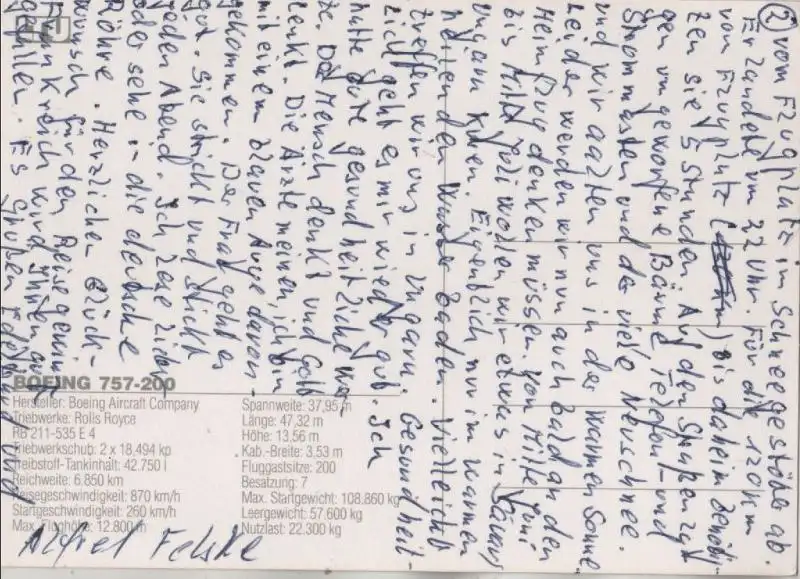 ② vom Flugplatz im Schneegestöber ab.
Er landete um 22 Uhr. Für die 120 km
vom Flugplatz ( ) bis daheim benötig-
ten sie 5 Stunden. Auf den Straßen
gen umgeworfene Bäume, Telefon- und
Strommasten und der viele Neuschnee.
und wir aalten uns in der warmen Sonne
Leider werden wir nun auch bald an den
Heimflug denken müssen. Von Mitte Juni
bis Mitte Juli wollen wir etwas in Sárvár
Ungarn kuren. Eigentlich nur im warmen
heilenden Wasser baden. Vielleicht
treffen wir uns in Ungarn. Gesundheit-
lich geht es mir wieder gut. Ich
hatte gute gesundheitliche
Der Mensch denkt und Gott
lenkt. Die Ärzte meinen, ich bin
mit einem blauen Auge davon
gekommen. Der Frau geht es
gut. Sie strickt und stickt
jeden Abend. Ich lese lieber
oder sehe in die deutsche
Röhre. Herzlichen Glück-
wunsch für den Reisegewinn
Frankreich wird Ihnen gut
gefallen. Es grüßen Edeltraud und
Alfred Felske
BOEING 757-200
Hersteller: Boeing Aircraft Company
Triebwerke: Rolls Royce
RB 211-535 E 4
Triebwerkschub: 2 x 18,494 kp
Treibstoff-Tankinhalt: 42.750 l
Reichweite: 6.850 km
Reisegeschwindigkeit: 870 km/h
Startgeschwindigkeit: 260 km/h
Max. Flughöhe: 12.800 m
Spannweite: 37,95 m
Länge: 47,32 m
Höhe: 13,56 m
Kab.-Breite: 3,53 m
Fluggastsitze: 200
Besatzung: 7
Max. Startgewicht: 108.860 kg
Leergewicht: 57.600 kg
Nutzlast: 22.300 kg